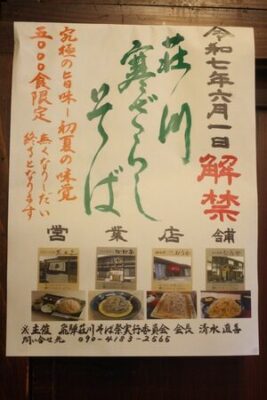 令和七年六月一日 解禁
荘川
寒ざらし
そば
究極の旨味ー初夏の味覚
五〇〇〇食限定 無くなりしだい
終了となります
営業店舗
※主催 飛騨荘川そば祭実行委員会 会長 清水直喜
問い合せ先 090-4183-2565